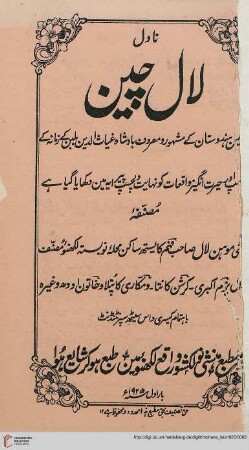 ناول
لال چین
ہندوستان کے مشہور و معروف بادشاہ غیاث الدین بلبن کے زمانہ کے
حیرت انگیز واقعات کو نہایت دلچسپ پیرایہ میں دکھایا گیا ہے
مصنفہ
موہن لال صاحب فہم کایستھ ساکن محلہ نوبستہ لکھنؤ مصنف
بزم اکبری۔ کرشن کانتا۔ و مکاری کا پتلا و خاتون وغیرہ
باہتمام کیسری داس سیٹھ سپرنٹنڈنٹ
مطبع منشی نولکشور واقع لکھنؤ میں طبع ہو کر شایع ہوا
بار اول ۱۹۲۵ء